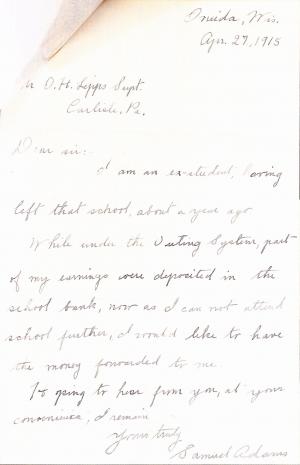 Oneida, Wis.
Apr. 27, 1915
Mr O. H. Lipps Supt.
Carlisle, Pa.
Dear sir:-
I am an ex-student, having
left that school, about a year ago
While under the Outing System, part
of my earnings were deposited in the
school bank, now as I can not attend
school further, I would like to have
the money forwarded to me.
Hoping to hear from you, at your
convenience, I remain
Yours truly
Samuel Adams